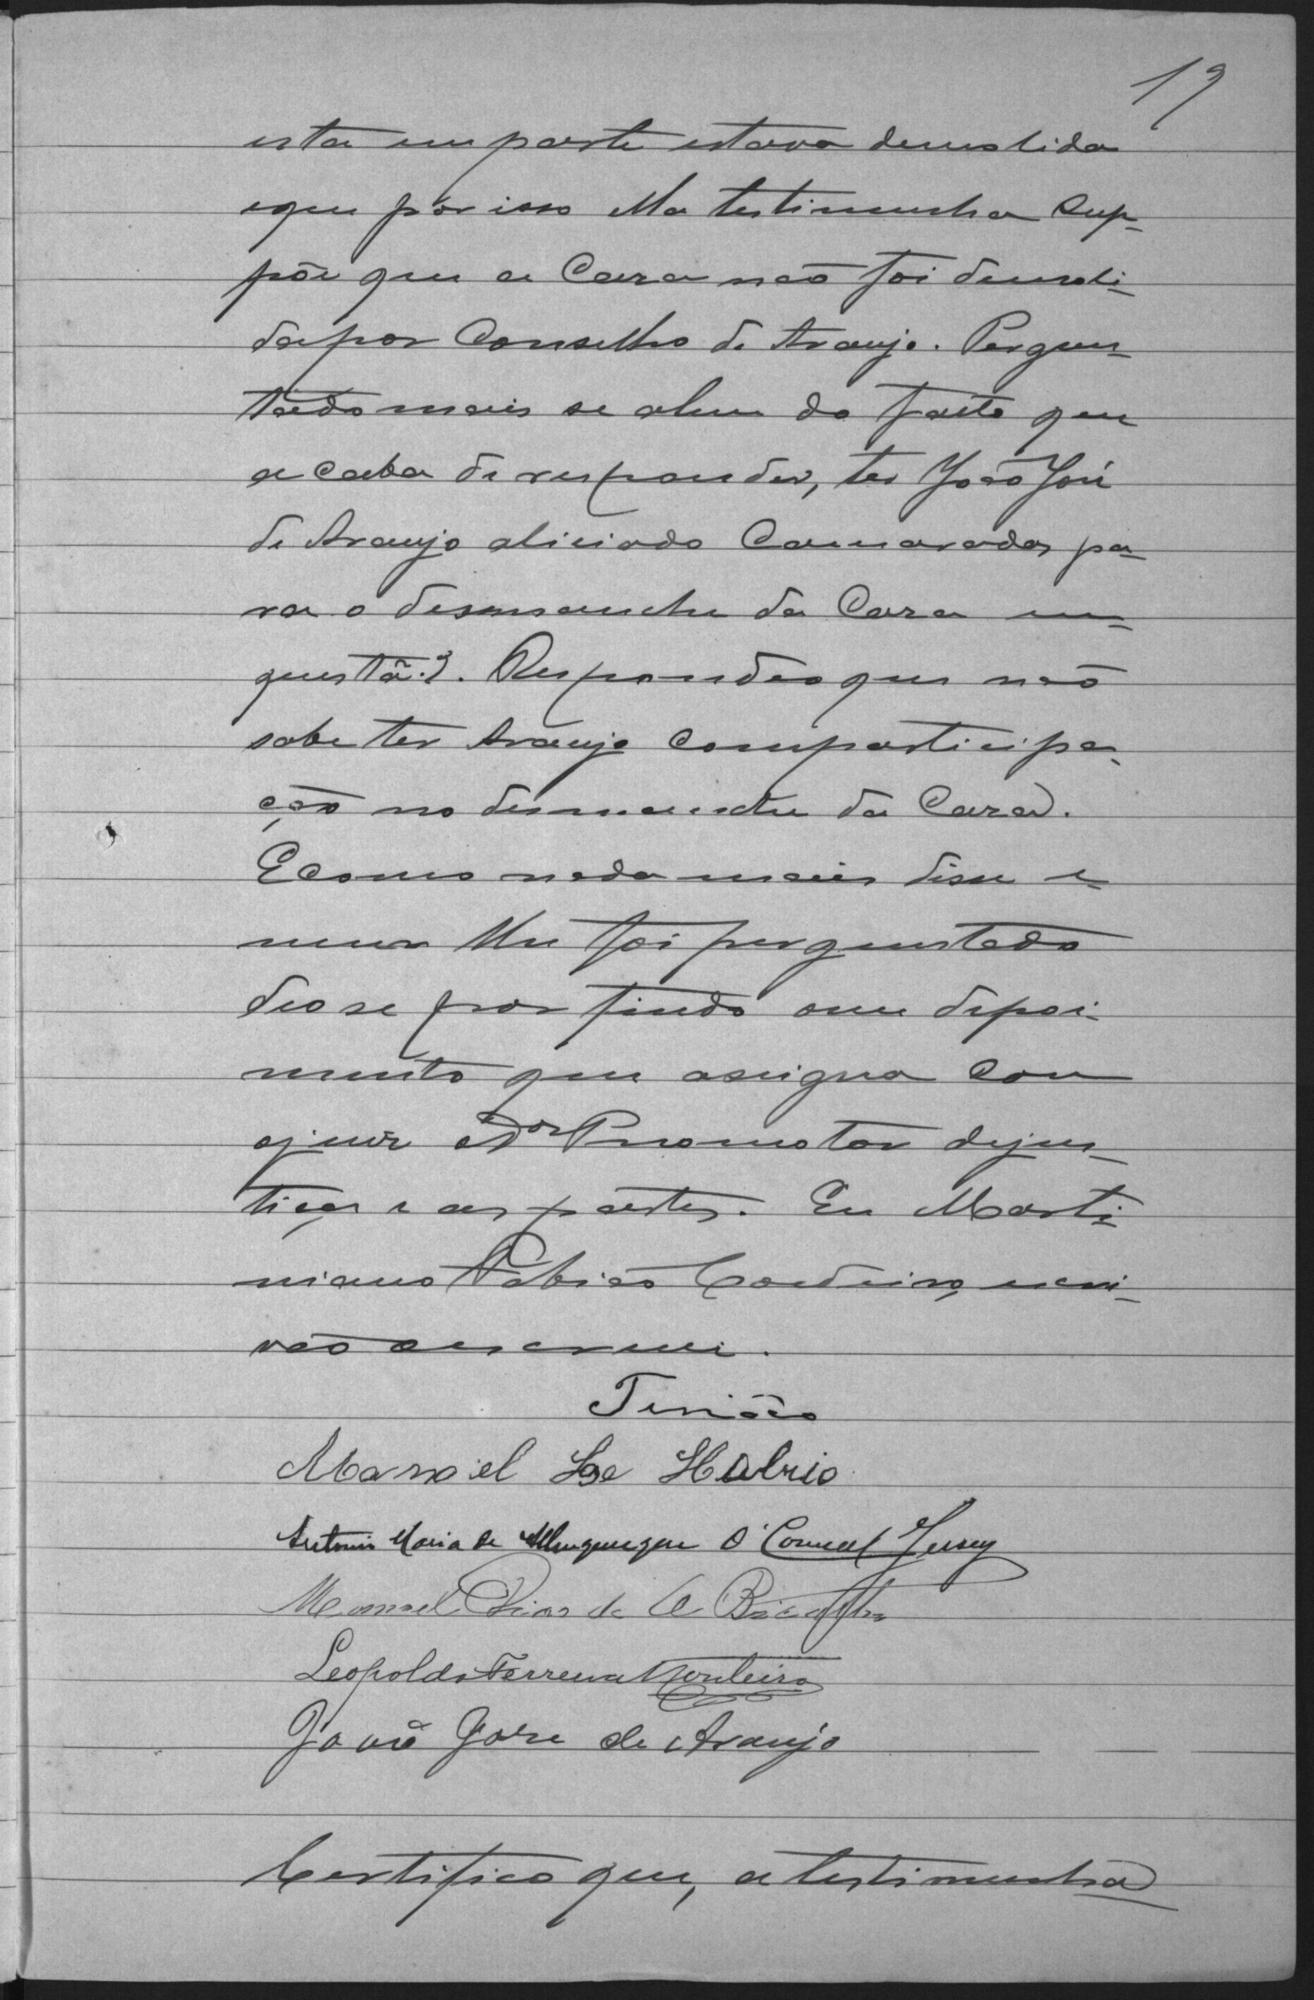 19
esta em parte estava demolida
e que por isso ella testimunha sup-
põe que a casa não foi demoli-
da por Conselho de Araujo. Pergun-
tado mais se alem do facto que
acaba de responder, ter João José
de Araujo aliciado Camaradas pa-
ra o desmanche da Casa em
questã? . Respondeo que não
sabe ter Araujo comparticipa-
ção no desmanche da Casa.
E como nada mais disse e
nem lhe foi perguntado
deose por findo seu depoi-
mento que assigna com
o juiz e Dor Promotor de jus-
tiça e as partes. Eu Marti-
niano Fabião Cordeiro, escri-
vão o escrevi.
Manoel
Antonio Maria de Albuquerque O' Connel Jersey
Manoel Dias de
Leopoldo Ferreira Monteiro
João José de Araujo
Certifico que, a testimunha